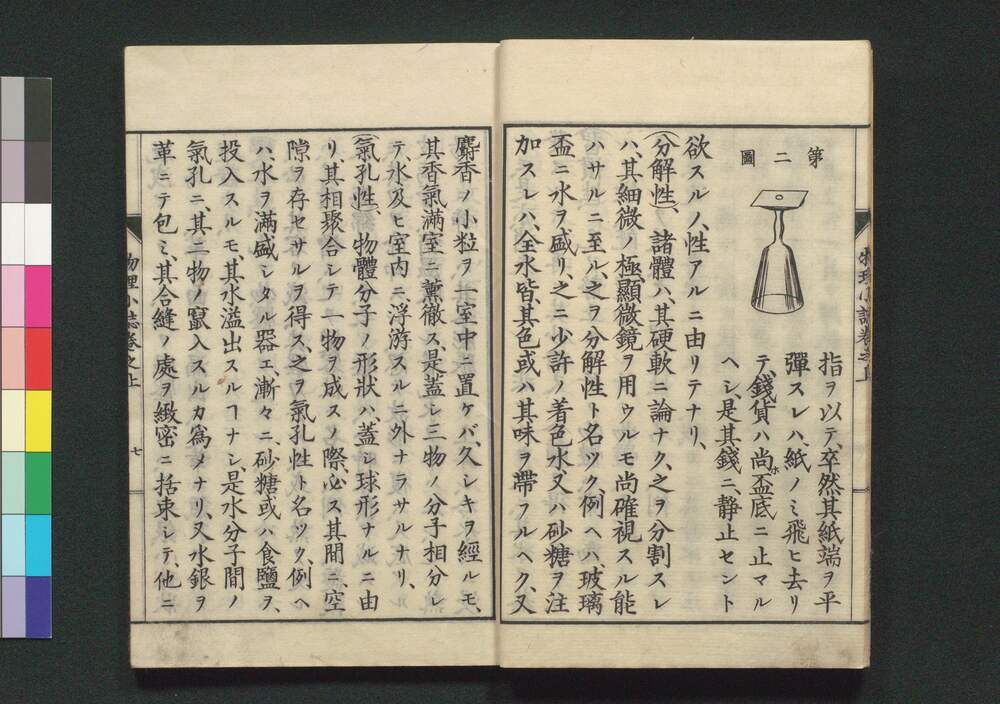 第二圖
指ヲ以テ、卒然其紙端ヲ平
彈スレハ、紙ノミ飛ヒ去リ
テ、錢貨ハ尚ホ盃底ニ止マル
ヘシ、是其錢ニ、静止セント
欲スルノ、性アルニ由リテナリ、
(分解性)、諸體ハ、其硬軟ニ論ナク、之ヲ分割スレ
ハ、其細微ノ極、顯微鏡ヲ用ウルモ尚確視スル能
ハサルニ至ル、之ヲ分解性ト名ツク、例ヘハ、玻璃
盃ニ水ヲ盛リ、之ニ少許ノ着色水、又ハ砂糖ヲ注
加スレハ、全水皆、其色或ハ其味ヲ帶フルヘク、又
麝香ノ小粒ヲ一室中ニ置ケバ、久シキヲ經ルモ、
其香氣滿室ニ薫徹ス、是蓋シ三物ノ分子相分レ
テ、水及ヒ室内ニ、浮游スルニ外ナラサルナリ、
(氣孔性)、物體分子ノ形狀ハ、蓋シ球形ナルニ由
リ、其相聚合シテ一物ヲ成スノ際、必ス其間ニ、空
隙ヲ存セサルヲ得ス、之ヲ氣孔性ト名ツク、例ヘ
ハ、水ヲ滿盛シタル器エ、漸々ニ、砂糖或ハ食鹽ヲ、
投入スルモ、其水溢出スルヿナシ、是水分子間ノ
氣孔ニ、其二物ノ竄入スルカ爲メナリ、又水銀ヲ
革ニテ包ミ、其合縫ノ處ヲ緻密ニ括束シテ、他ニ
物理小誌卷之上
七